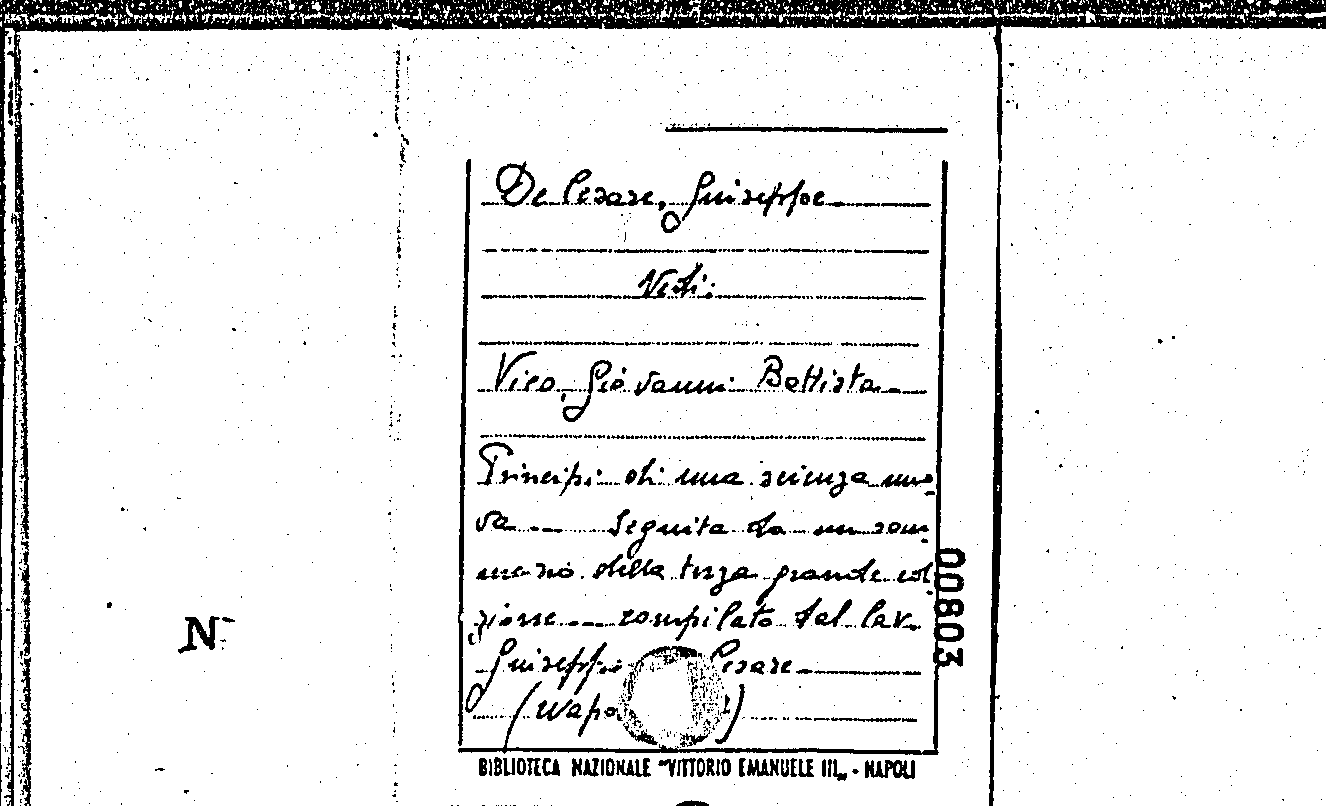 De Cesare, Giuseppe
Vedi:
Vico, Giovanni Battista
Principi di una scienza nuo-
va ... Seguita da un som-
mario della terza grande edi-
zione ... compilato dal Cav.
Giuseppe Cesare
(Napo )
00803
N
BIBLIOTECA NAZIONALE "VITTORIO EMANUELE III„ - NAPOLI